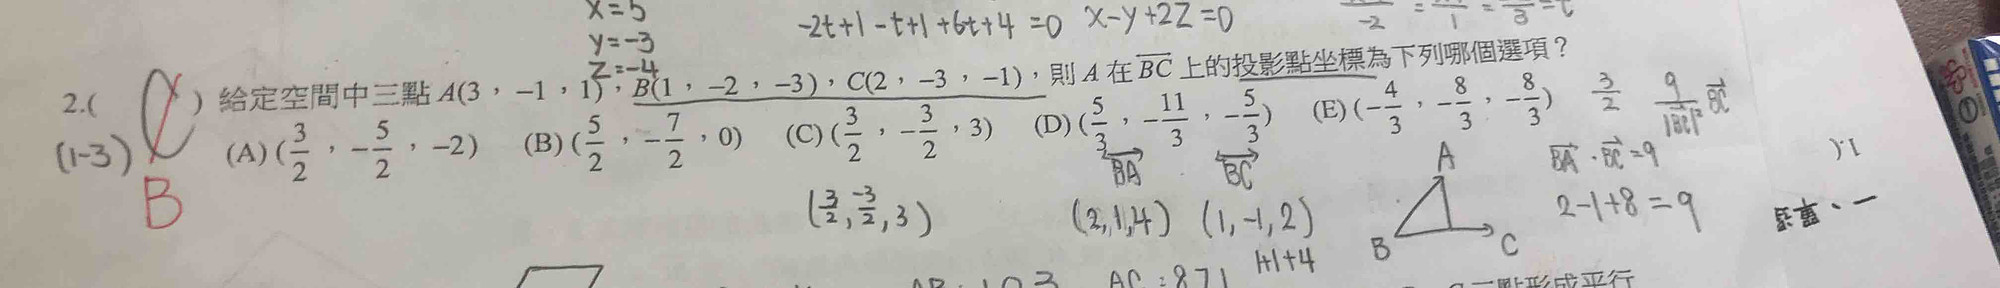 x=5
y=-3
z=-4
-2t+1-t+1+6t+4=0 x-y+2z=0
2.( C ) 給定空間中三點 A(3,-1,1),B(1,-2,-3),C(2,-3,-1),則 A 在 BC 上的投影點坐標為下列哪個選項?
(1-3) (A)(3/2,-5/2,-2) (B)(5/2,-7/2,0) (C)(3/2,-3/2,3) (D)(5/3,-11/3,-5/3) (E)(-4/3,-8/3,-8/3)
B
3/2 9/|BC|² BC
BA BC
(3/2,-3/2,3) (2,1,4) (1,-1,2)
1+1+4
A
B C
BA·BC=9
2-1+8=9
AC:871